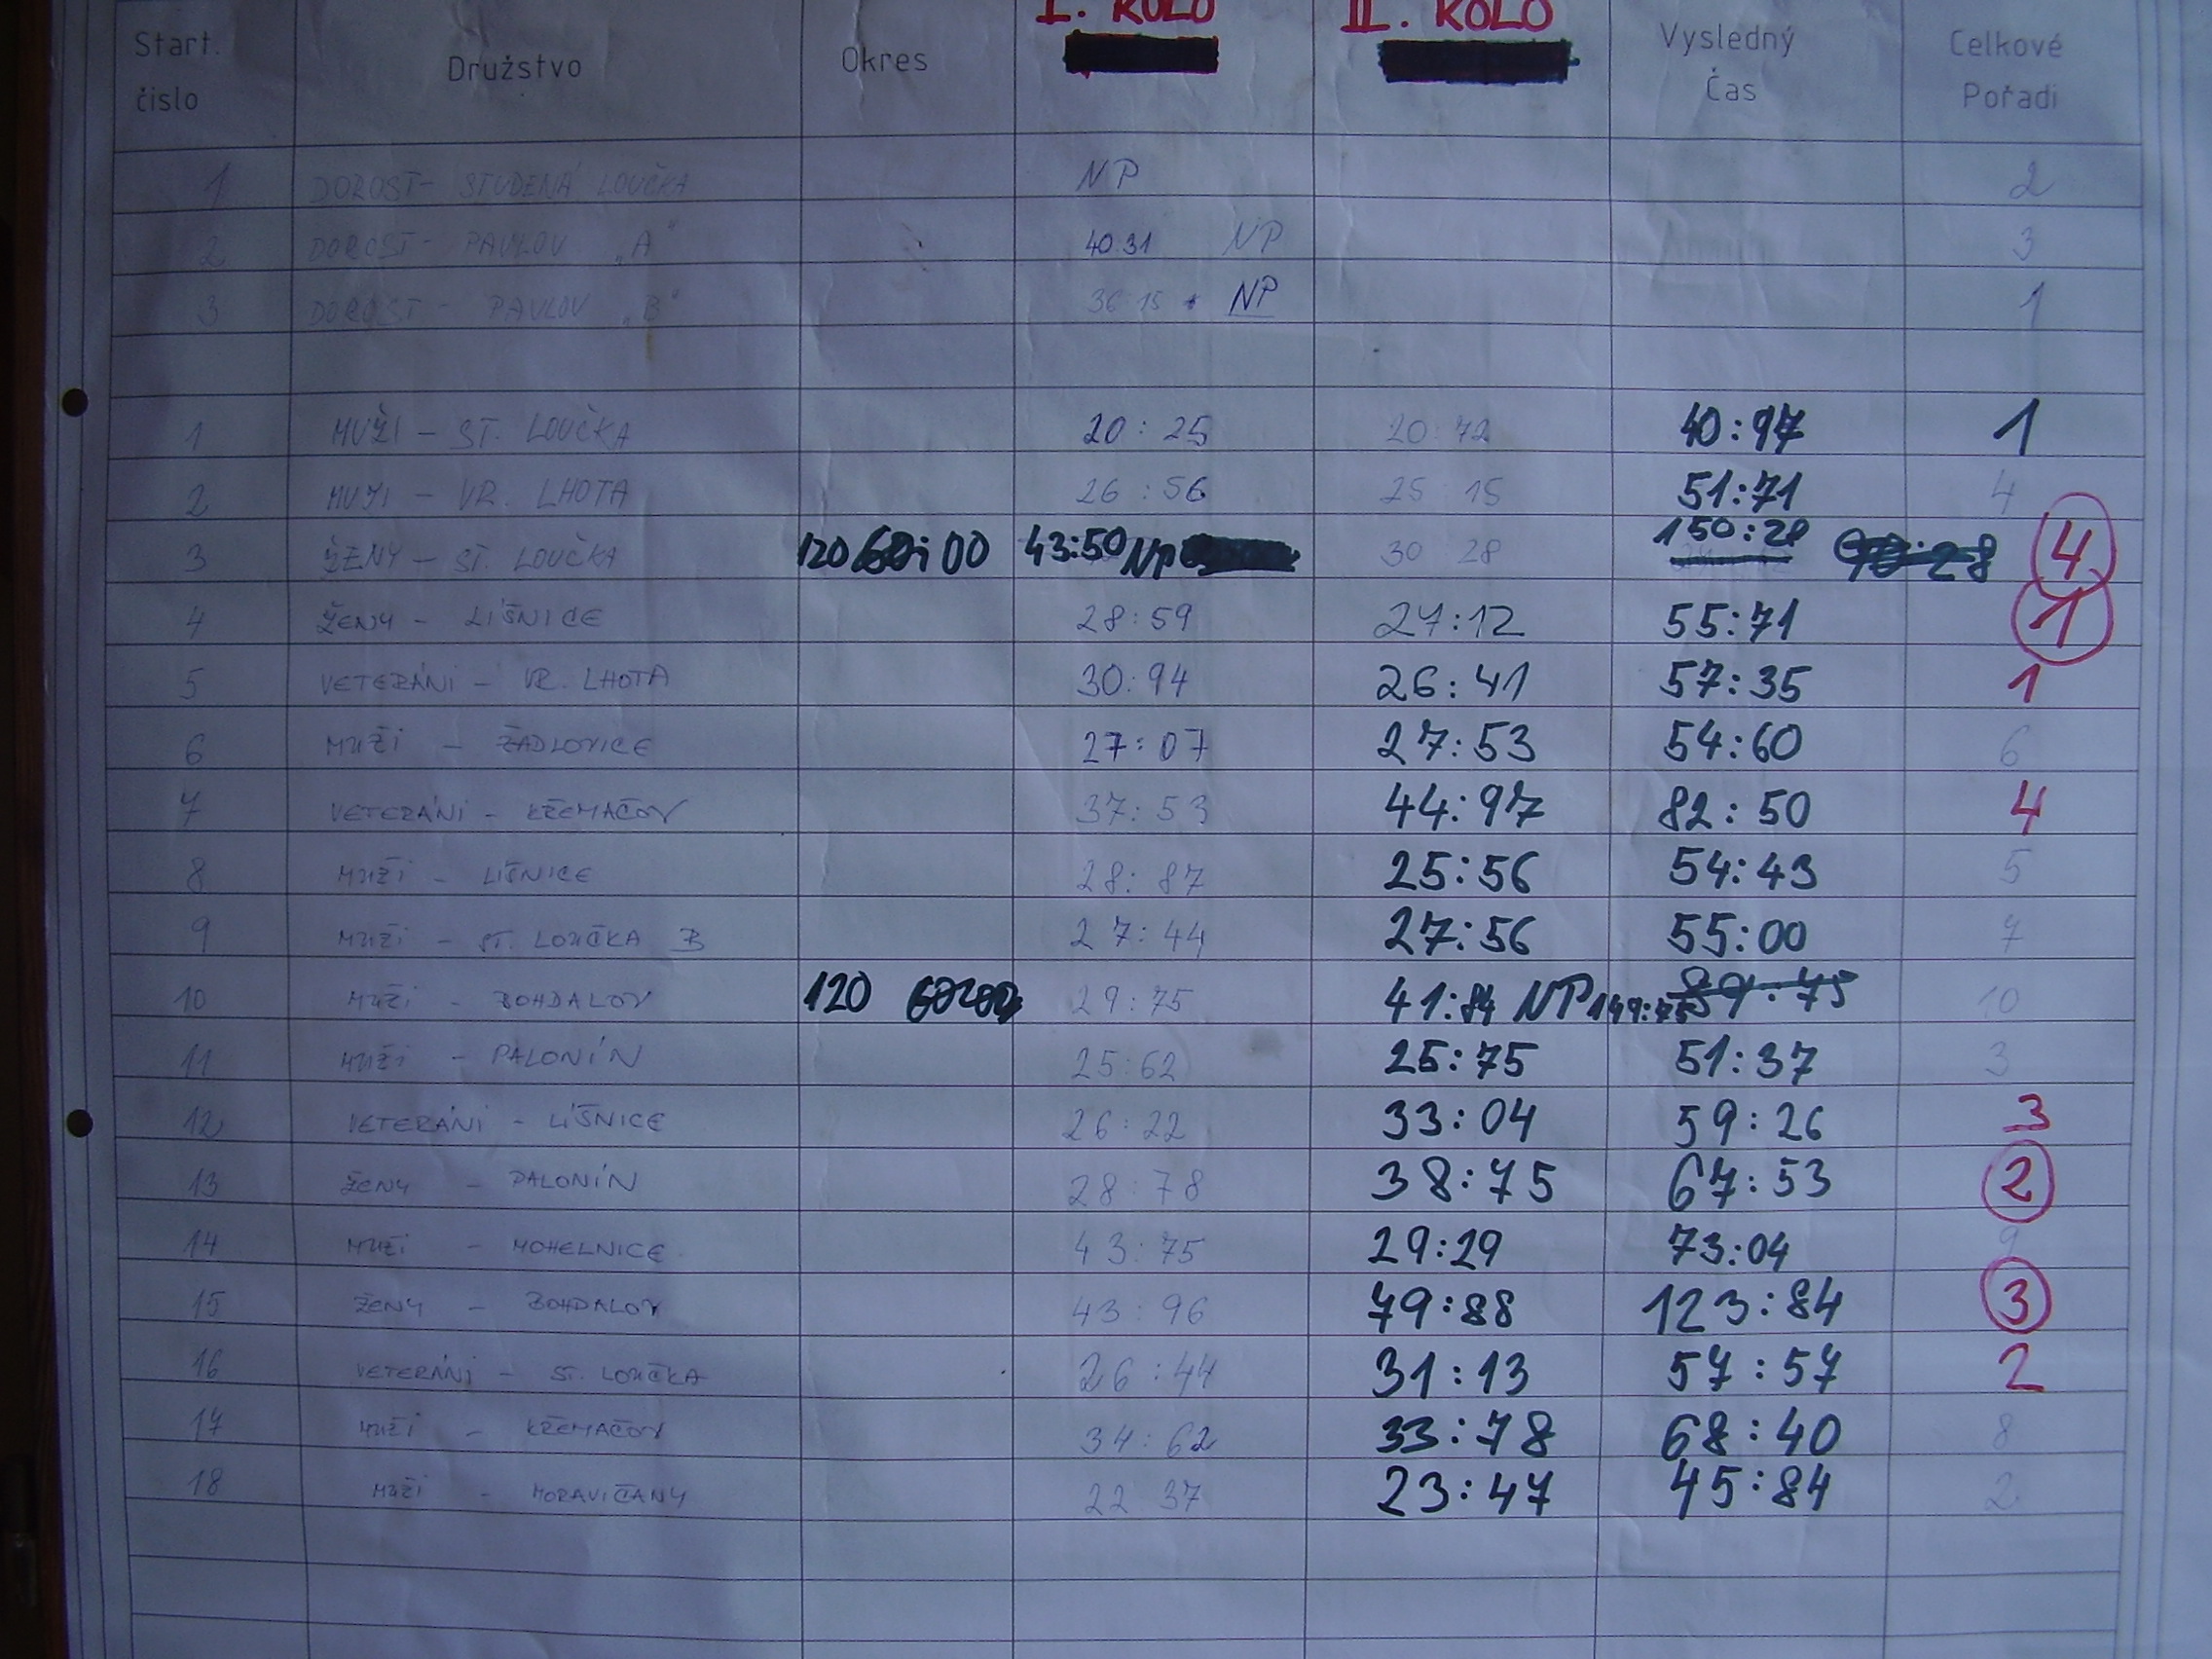 I. KOLO II. KOLO
Start. číslo Družstvo Okres Vysledný Čas Celkové Pořadi
1 DOROST- STUDENÁ LOUČKA NP 2
2 DOROST- PAVLOV „A" 40:31 NP 3
3 DOROST - PAVLOV „B" 36 15 NP 1
1 MUŽI - ST. LOUČKA 20:25 20:72 40:97 1
2 MUŽI - VR. LHOTA 26:56 25 15 51:71 4
3 ŽENY - ST. LOUČKA 120 :00 43:50 NP 30 28 150:28 4
4 ŽENY - LÍŠNICE 28:59 27:12 55:71 1
5 VETERÁNI - VR. LHOTA 30:94 26:41 57:35 1
6 MUŽI - ŽADLOVICE 27:07 27:53 54:60 6
7 VETERÁNI - KŘEMAČOV 37:53 44:97 82:50 4
8 MUŽI - LÍŠNICE 28:87 25:56 54:43 5
9 MUŽI - ST. LOUČKA B 27:44 27:56 55:00 7
10 MUŽI - BOHDALOV 120 29:75 41:84 NP 149:75 89:75 10
11 MUŽI - PALONÍN 25:62 25:75 51:37 3
12 VETERÁNI - LÍŠNICE 26:22 33:04 59:26 3
13 ŽENY - PALONÍN 28:78 38:75 67:53 2
14 MUŽI - MOHELNICE 43:75 29:29 73:04 9
15 ŽENY - BOHDALOV 43:96 79:88 123:84 3
16 VETERÁNI - ST. LOUČKA 26:44 31:13 57:57 2
17 MUŽI - KŘEMAČOV 34:62 33:78 68:40 8
18 MUŽI - MORAVIČANY 22 37 23:47 45:84 2